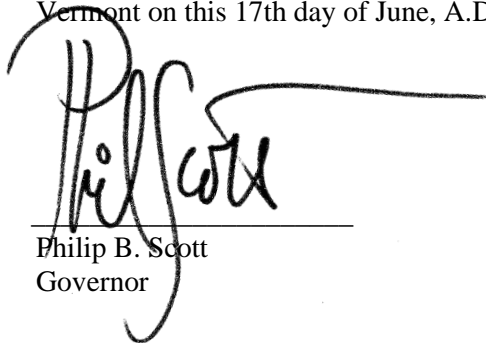 Vermont on this 17th day of June, A.D
Phil Scott
Philip B. Scott
Governor